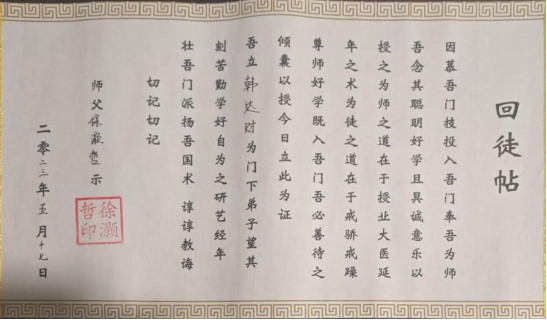 回徒帖
因慕吾门技投入吾门奉吾为师
吾念其聪明好学且具诚意乐以
授之为师之道在于授业大医延
年之术为徒之道在于戒骄戒躁
尊师好学既入吾门吾必善待之
倾囊以授今日立此为证
吾立韩达财为门下弟子望其
刻苦勤学好自为之研艺经年
壮吾门派扬吾国术 谆谆教诲
切记切记
师父徐灏哲示
二零二三年五月十七日
徐灏哲印